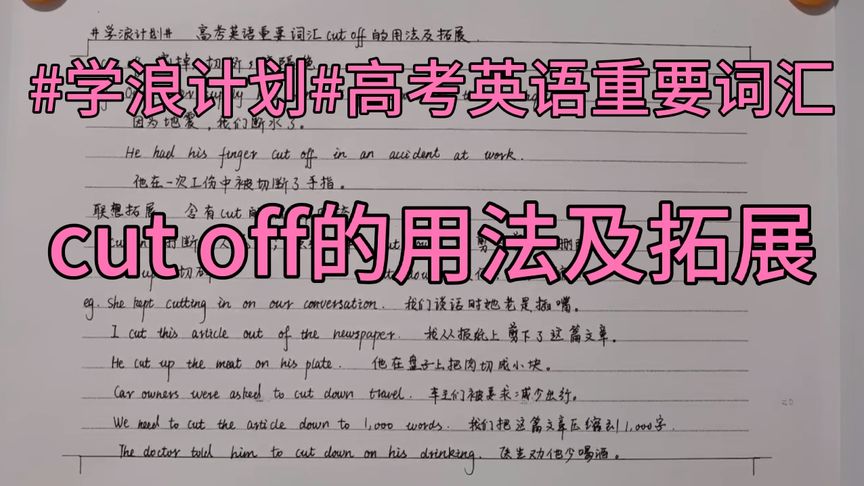 #学浪计划# 高考英语重要词汇cut off的用法及拓展.
#学浪计划#高考英语重要词汇
因为地震,我们断水了。
He had his finger cut off in an accident at work.
他在一次工伤中被切断了手指。
联想拓展 含有cut
cut off的用法及拓展
eg. She kept cutting in on our conversation. 我们谈话时她老是插嘴。
I cut this article out of the newspaper. 我从报纸上剪下了这篇文章。
He cut up the meat on his plate. 他在盘子上把肉切成小块。
Car owners were asked to cut down travel. 车主们被要求减少出行。
We need to cut the article down to 1,000 words. 我们把这篇文章压缩到1,000字.
The doctor told him to cut down on his drinking. 医生劝他少喝酒。